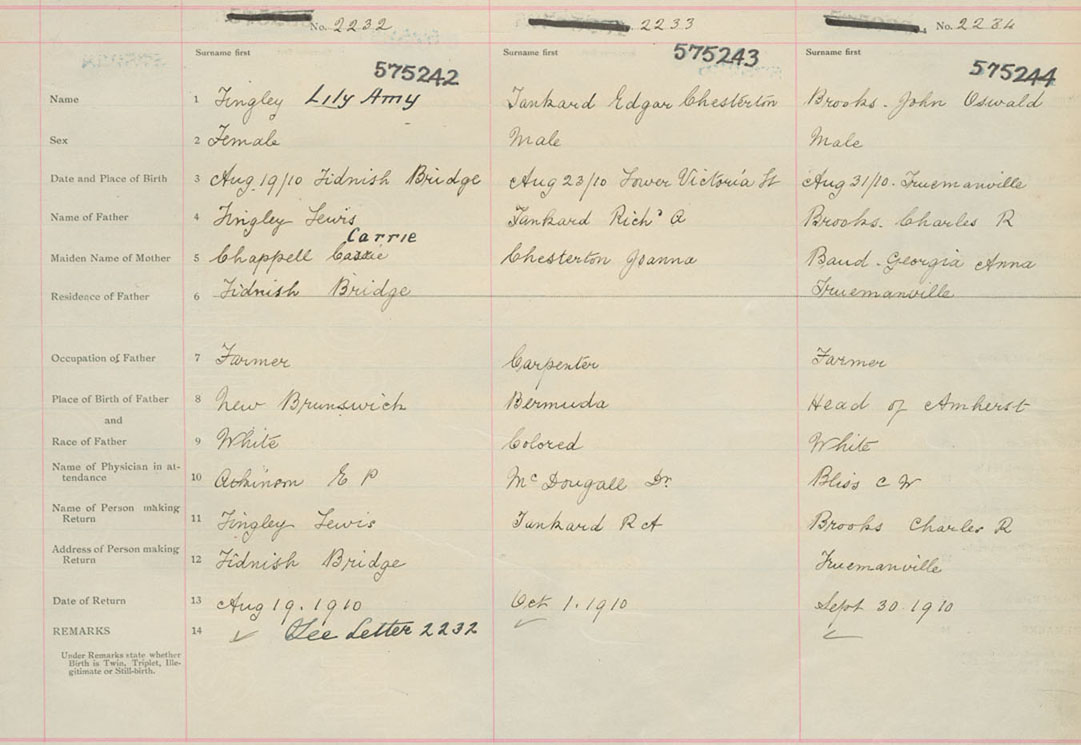 No. 2232 2233 No. 2234
Surname first Surname first Surname first
575242 575243 575244
Name 1 Tingley Lily Amy Tankard Edgar Chesterton Brooks. John Oswald
Sex 2 Female Male Male
Date and Place of Birth 3 Aug. 19/10 Tidnish Bridge Aug 23/10 Lower Victoria St Aug 31/10. Truemanville
Name of Father 4 Tingley Lewis Tankard Richd A Brooks. Charles R
Carrie
Maiden Name of Mother 5 Chappell Chesterton Joanna Baud. Georgia Anna
Residence of Father 6 Tidnish Bridge Truemanville
Occupation of Father 7 Farmer Carpenter Farmer
Place of Birth of Father 8 New Brunswick Bermuda Head of Amherst
and
Race of Father 9 White Colored White
Name of Physician in at-
tendance 10 E P McDougall Dr. Bliss C W
Name of Person making
Return 11 Tingley Lewis Tankard R A Brooks Charles R
Address of Person making
Return 12 Tidnish Bridge Truemanville
Date of Return 13 Aug 19. 1910 Oct 1. 1910 Sept 30 1910
REMARKS 14 See Letter 2232
Under Remarks state whether
Birth is Twin, Triplet, Ille-
gitimate or Still-birth.